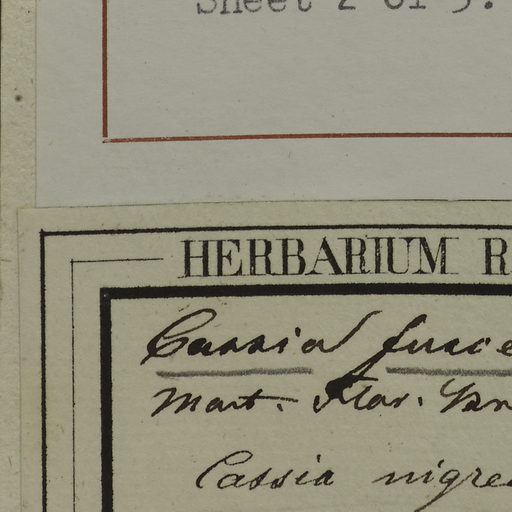 Sheet 2 of 5.
HERBARIUM R
Cassia fusce
Mart. Flor. Bra
Cassia nigre